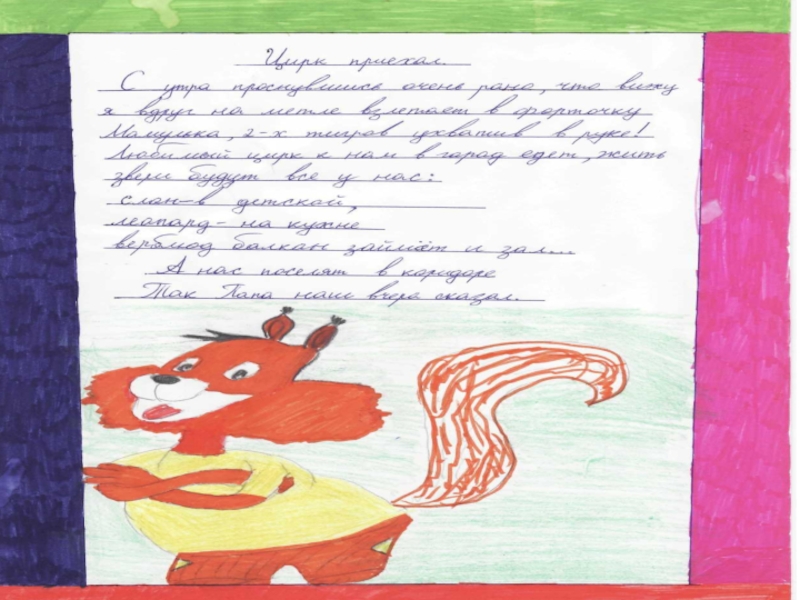 Цирк приехал.
С утра проснувшись очень рано, что вижу
я вдруг на метле взлетает в форточку
Мамулька, 2-х тигров ухватив в руке!
Любимый цирк к нам в город едет, жить
звери будут все у нас:
слон-в детской,
леопард- на кухне
верблюд балкон займёт и зал...
А нас поселят в коридоре
Так Папа наш вчера сказал.